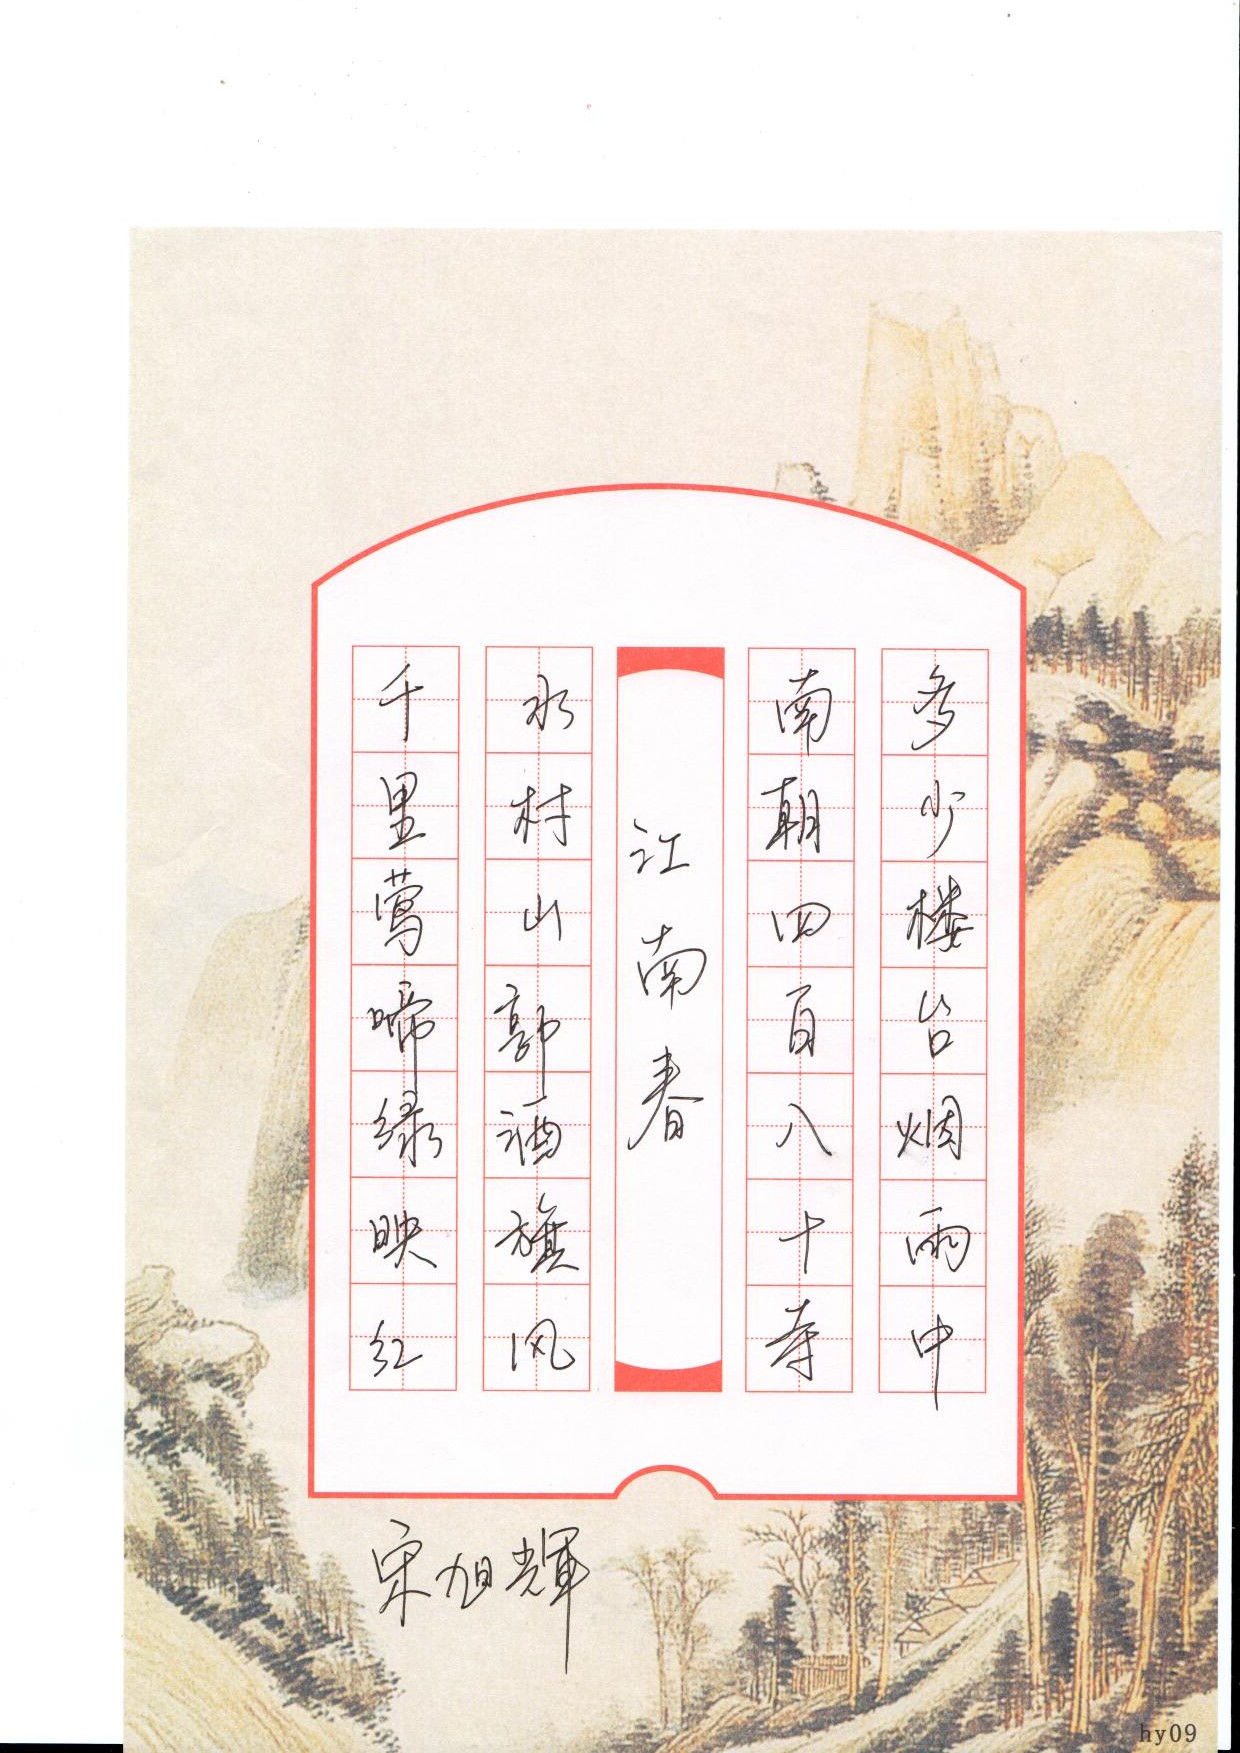 千里莺啼绿映红
水村山郭酒旗风
江南春
南朝四百八十寺
多少楼台烟雨中
宋旭輝
hy09